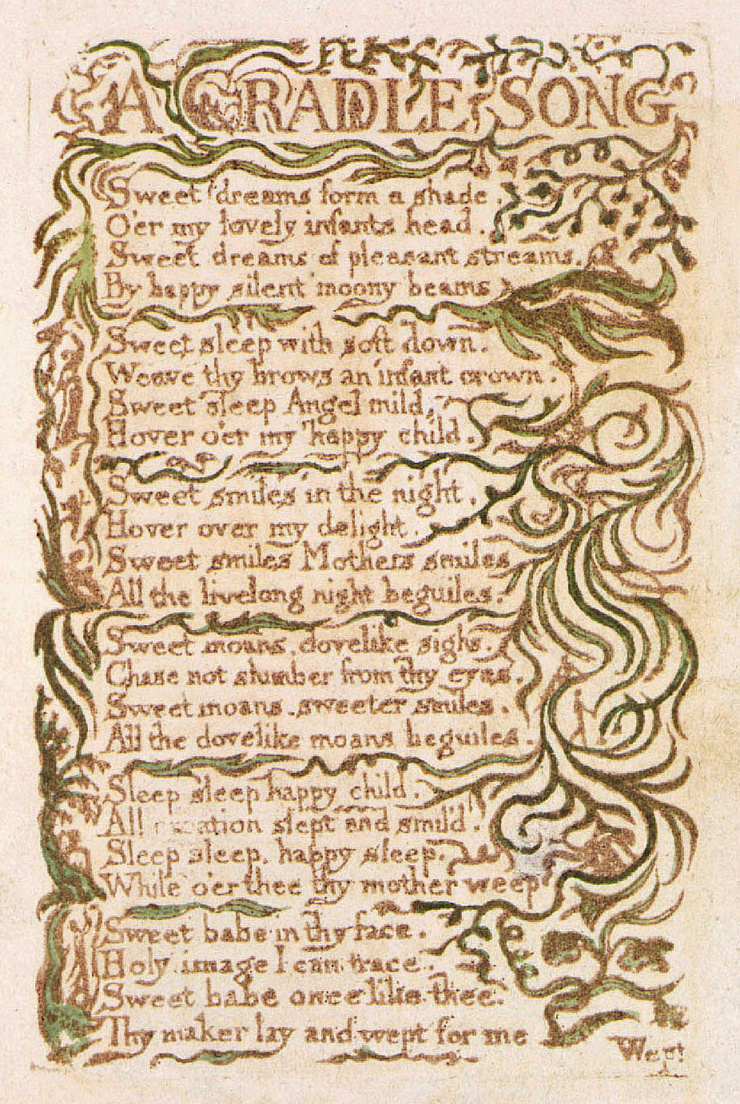 A CRADLE SONG
Sweet dreams form a shade.
O'er my lovely infants head.
Sweet dreams of pleasant streams.
By happy silent moony beams
Sweet sleep with soft down.
Weave thy brows an infant crown.
Sweet sleep Angel mild,
Hover o'er my happy child.
Sweet smiles in the night.
Hover over my delight.
Sweet smiles Mothers smiles
All the livelong night beguiles.
Sweet moans, dovelike sighs.
Chase not slumber from thy eyes.
Sweet moans, sweeter smiles.
All the dovelike moans beguiles.
Sleep sleep happy child.
All creation slept and smil'd.
Sleep sleep, happy sleep.
While o'er thee thy mother weep
Sweet babe in thy face.
Holy image I can trace.
Sweet babe once like thee.
Thy maker lay and wept for me
Wept